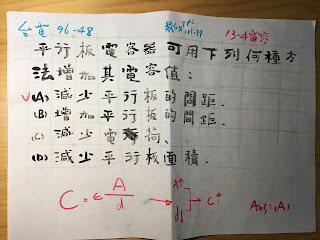 台電 96-48
13-4電容
平行板電容器可用下列何種方
法增加其電容值:
(A) 減少平行板的間距.
(B) 增加平行板的間距.
(C) 減少電荷、
(D) 減少平行板面積.
C = ϵ A/d → A↑ d↓ C↑
Ans:(A)